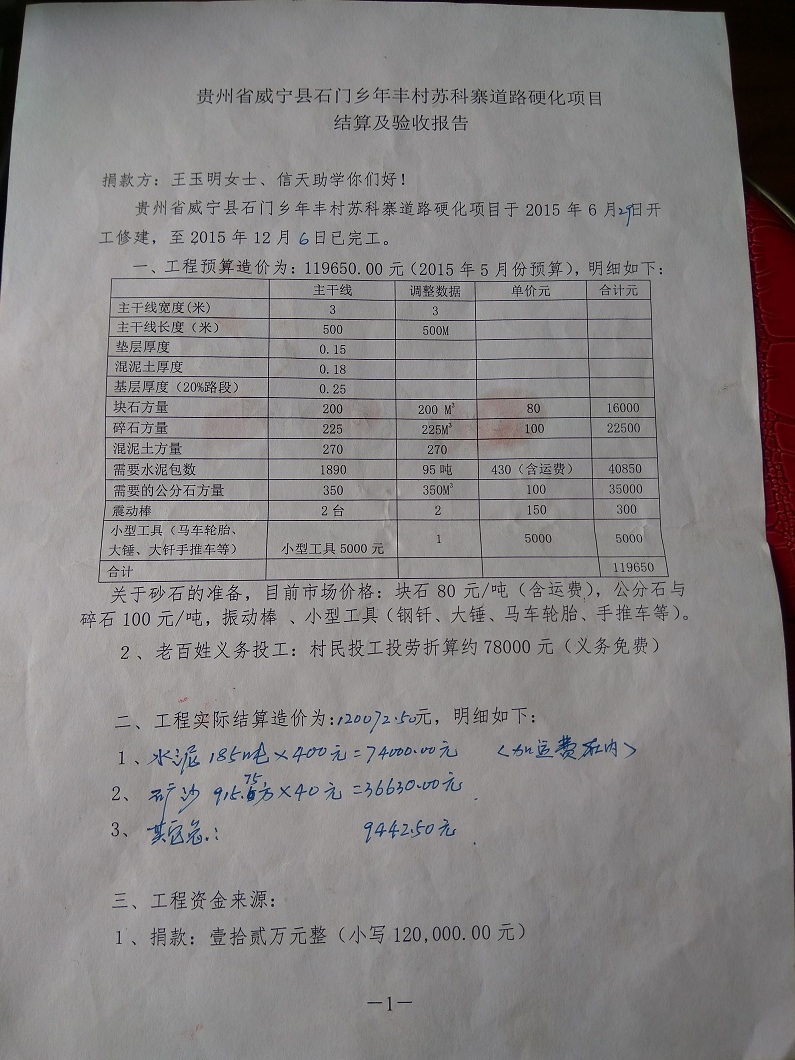 贵州省威宁县石门乡年丰村苏科寨道路硬化项目
结算及验收报告
捐款方：王玉明女士、信天助学你们好！
贵州省威宁县石门乡年丰村苏科寨道路硬化项目于 2015 年 6 月29日开
工修建，至 2015 年 12 月 6 日已完工。
一、工程预算造价为：119650.00 元（2015 年 5 月份预算），明细如下：
主干线 调整数据 单价元 合计元
主干线宽度(米) 3 3
主干线长度（米） 500 500M
垫层厚度 0.15
混泥土厚度 0.18
基层厚度（20%路段） 0.25
块石方量 200 200 M³ 80 16000
碎石方量 225 225M³ 100 22500
混泥土方量 270 270
需要水泥包数 1890 95 吨 430（含运费） 40850
需要的公分石方量 350 350M³ 100 35000
震动棒 2 台 2 150 300
小型工具（马车轮胎、
大锤、大钎手推车等） 小型工具 5000 元 1 5000 5000
合计 119650
关于砂石的准备，目前市场价格：块石 80 元/吨（含运费），公分石与
碎石 100 元/吨，振动棒 、小型工具（钢钎、大锤、马车轮胎、手推车等）。
2 、老百姓义务投工：村民投工投劳折算约 78000 元（义务免费）
二、工程实际结算造价为:120072.50元，明细如下：
1、水泥 185吨×400元=74000.00元 （加运费在内）
2、矿沙 915.75方×40元=36630.00元
3、其它: 9442.50元
三、工程资金来源：
1、捐款：壹拾贰万元整（小写 120,000.00 元）
—1—